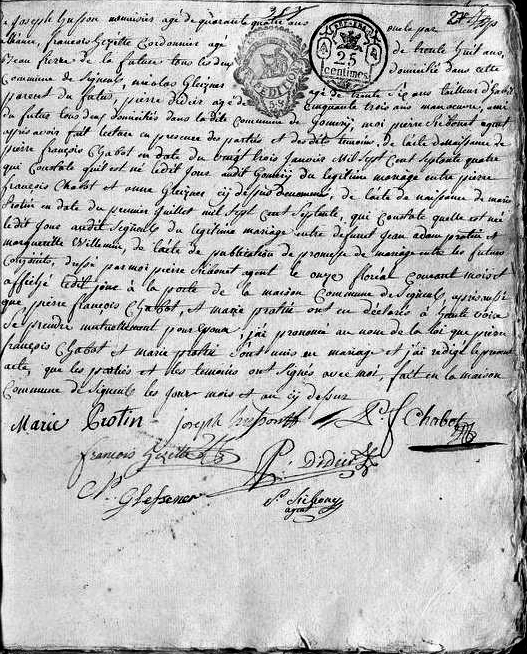 de Joseph husson menuisier agé de quarante quatre ans oncle par
alliance, françois Gozette Cordonnier agé de trente huit ans,
Beau frere de la future tous les deux domicilié dans cette
Commune de Signeuls, nicolas Gleizner agé de trente Six ans tailleur d'habit
parent du futur, pierre didier agé de Cinquante trois ans manœuvre, ami
du futur tous deux domiciliés dans la dite Commune de Gomery, moi pierre agent
apres avoir fait lecture en presence des parties et des dits temoins, de l'acte de naissance de
pierre françois Chabot en date du vingt trois Janvier Mil Sept Cent Septante quatre
qui Constate quil est né ledit Jour audit Gomery du legitime mariage entre pierre
françois Chabot et anne Gleizner cy dessus denommés, de l'acte de naissance de marie
Protin en date du premier Juillet mil Sept Cent Septante, qui Constate quelle est né
ledit Jour audit Signeuls du legitime mariage entre defunt Jean adam protin et
marguerite Willemin, de l'acte de publication de promesse de mariage entre les futurs
Conjoints, dressé par moi pierre agent le onze floreal Courant mois et
affiché ledit jour à la porte de la maison Commune de Signeuls, après aussi
que pierre françois Chabot, et marie protin ont eu déclarés à haute voix
Se prendre mutuellement pour Epoux j'ai prononcé au nom de la loi que pierre
françois Chabot et marie protin Sont unis en mariage et j'ai redigé le present
acte, que les parties et les temoins ont Signés avec moi, fait en la maison
Commune de Signeuls les Jour mois et an cy dessus
Marie Protin joseph P. f Chabot
françois Gozette P. Didier
N. Glessener P.
agent
25
centimes